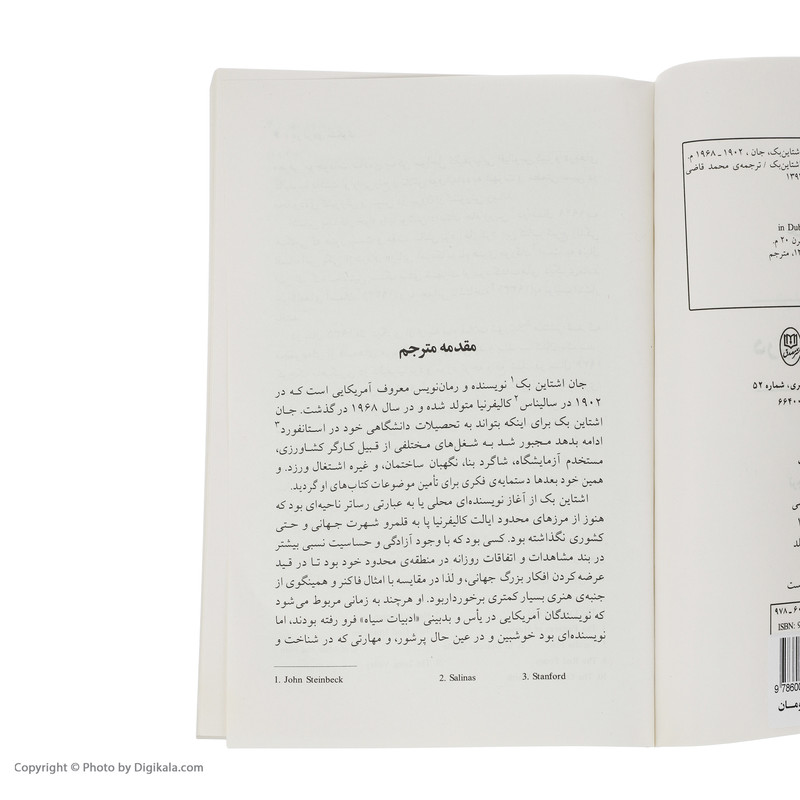 اشتاین‌بک، جان، ۱۹۰۲ ـ ۱۹۶۸ م.
اشتاین‌بک / ترجمه‌ی محمد قاضی
in Dub
۲۰ م.
مترجم
شماره ۵۲
۶۶۴۰۰
۹۷۸ ـ ۶۰
ISBN: 9
978600
مقدمه مترجم
جان اشتاین بک۱ نویسنده و رمان‌نویس معروف آمریکایی است کـه در
۱۹۰۲ در سالیناس۲ کالیفرنیا متولد شده و در سال ۱۹۶۸ در گذشت. جـان
اشتاین بک برای اینکه بتواند به تحصیلات دانشگاهی خود در استانفورد۳
ادامه بدهد مـجبور شـد بـه شـغل‌های مـختلفی از قبیل کـارگر کشـاورزی،
مستخدم آزمایشگاه، شاگرد بنا، نگهبان ساختمان، و غیره اشـتغال ورزد. و
همین خود بعدها دستمایه‌ی فکری برای تأمین موضوعات کتاب‌های او گردید.
اشتاین بک از آغاز نویسنده‌ای محلی یا به عبارتی رساتر ناحیه‌ای بود که
هنوز از مرزهای محدود ایالت کالیفرنیا پا به قلمرو شـهرت جـهانی و حـتی
کشوری نگذاشته بود. کسی بود که با وجود آزادگی و حساسیت نسبی بیشتر
در بند مشاهدات و اتفاقات روزانه در منطقه‌ی محدود خود بود تـا در قـید
عرضه کردن افکار بزرگ جهانی، و لذا در مقایسه با امثال فاکنر و همینگوی از
جنبه‌ی هنری بسیار کمتری برخورداربود. او هرچند به زمانی مربوط می‌شود
که نویسندگان آمریکایی در یأس و بدبینی «ادبیات سیاه» فرو رفته بودند، اما
نویسنده‌ای بود خوشبین و در عین حال پرشور، و مهارتی که در شناخت و
1. John Steinbeck 2. Salinas 3. Stanford
Copyright © Photo by Digikala.com